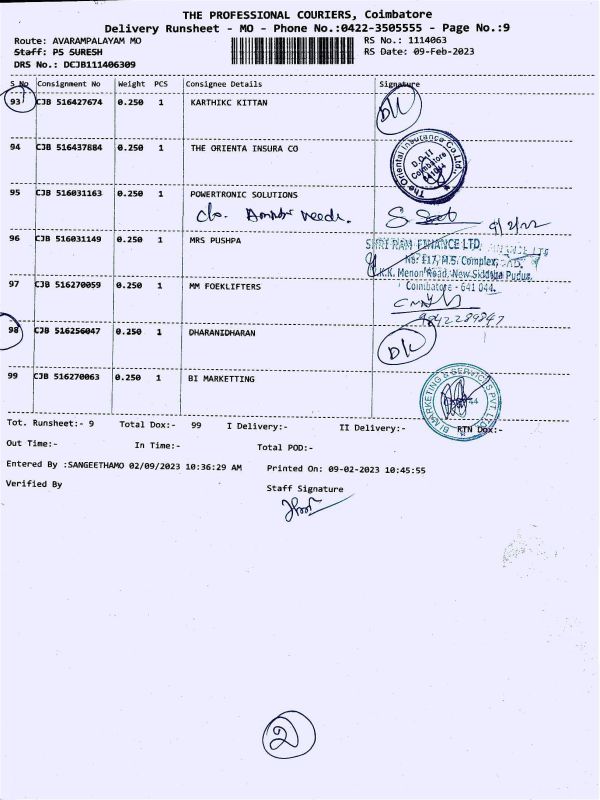 THE PROFESSIONAL COURIERS, Coimbatore
Delivery Runsheet - MO - Phone No.:0422-3505555 - Page No.:9
Route: AVARAMPALAYAM MO RS No.: 1114063
Staff: PS SURESH RS Date: 09-Feb-2023
DRS No.: DCJB111406309
S No Consignment No Weight PCS Consignee Details Signature
93 CJB 516427674 0.250 1 KARTHIKC KITTAN
94 CJB 516437884 0.250 1 THE ORIENTA INSURA CO
The Oriental Insurance Co. Ltd. D.O.II Coimbatore 641044
95 CJB 516031163 0.250 1 POWERTRONIC SOLUTIONS
96 CJB 516031149 0.250 1 MRS PUSHPA
SHRI RAM FINANCE LTD
No: E17, M.S. Complex,
K.K. Menon Road, New Siddha Pudur,
Coimbatore - 641 044.
97 CJB 516270059 0.250 1 MM FOEKLIFTERS
9842289847
98 CJB 516256047 0.250 1 DHARANIDHARAN
99 CJB 516270063 0.250 1 BI MARKETTING
BI MARKETING & SERVICES PVT. LTD.
Tot. Runsheet:- 9 Total Dox:- 99 I Delivery:- II Delivery:- RTN Dox:-
Out Time:- In Time:- Total POD:-
Entered By :SANGEETHAMO 02/09/2023 10:36:29 AM Printed On: 09-02-2023 10:45:55
Verified By Staff Signature
2